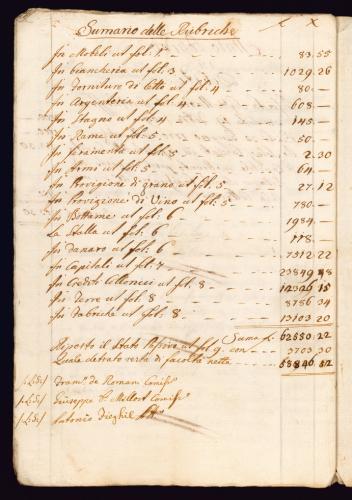 Sumario delle Rubriche £ X
In Mobeli ut fol: 1 83.55
In biancheria ut fol: 3 1029.26
In forniture di Letto ut fol: 4 80.
In Argenteria ut fol: 4 608
In Stagno ut fol: 4 145
In Rame ut fol: 5 50.
In feramenta ut fol: 5 2.30
In Armi ut fol: 5 64
In Provigione di grano ut fol: 5 27.12
In Provigione di Vino ut fol: 5 780
In Bottame ut fol: 6 1984
La Stalla ut fol: 6 118
In Danaro ut fol: 6 7312.22
In Capitali ut fol: 7 23849.48
In Crediti ut fol: 8 12326.15
In Terre ut fol: 8 8786.34
In Fabriche ut fol: 8 13103.20
Suma f: 62550.22
Reposto il Stato Pasivo ut fol 9. con 3703.30
Quale detrato resta di facoltà netta 58846.52
de Romani Comiss:
Giuseppe Comiss:
Antonio